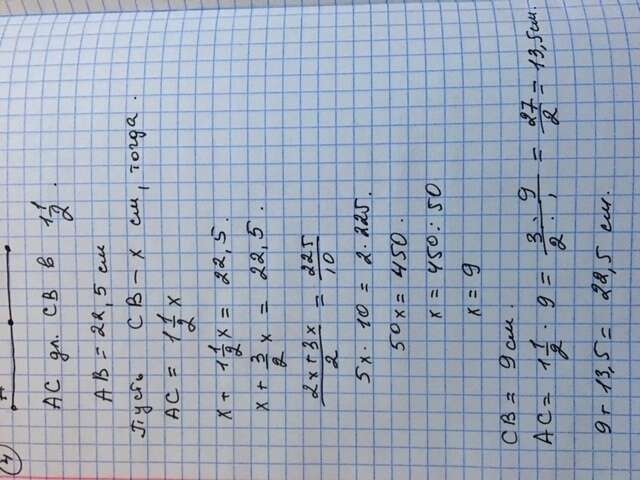 4
AC дл. CB в 1 1/2.
AB = 22,5 см
Пусть CB - x см, тогда.
AC = 1 1/2 x
x + 1 1/2 x = 22,5.
x + 3/2 x = 22,5.
(2x+3x)/2 = 225/10
5x · 10 = 2 · 225.
50x = 450.
x = 450 : 50
x = 9
CB = 9 см.
AC = 1 1/2 · 9 = (3 · 9)/(2 · 1) = 27/2 = 13,5 см.
9 + 13,5 = 22,5 см.